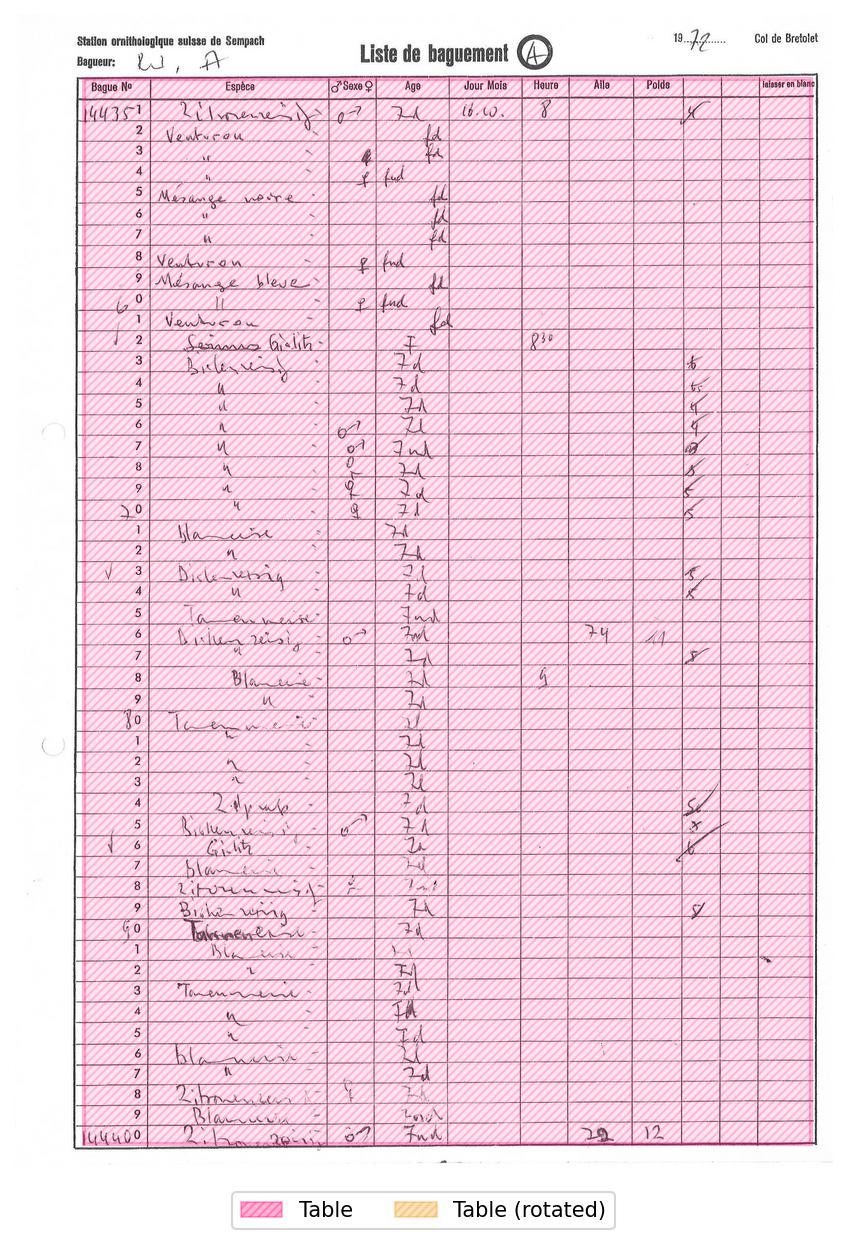 Station ornithologique suisse de Sempach
Bagueur: W, A
Liste de baguement A
1972 Col de Bretolet
Bague No Espèce ♂ Sexe ♀ Age Jour Mois Heure Aile Poids laisser en blanc
144351 Zitronenzeisig ♂ 7d 16.10. 8 4
2 Venturon fd
3 " fd
4 " ♀ fnd
5 Mésange noire fd
6 " fd
7 " fd
8 Venturon ♀ fnd
9 Mésange bleue fd
60 " ♀ fnd
1 Venturon fd
2 Serinus Girlitz 7 8³⁰
3 Birkenzeisig 7d
4 " 7d
5 " 7d 4
6 " ♂ 7d 4
7 " ♂ 7nd
8 " ♀ 7d 5
9 " ♀ 7d 5
70 " ♀ 7d 5
1 Blaumeise 7d
2 " 7d
3 Birkenzeisig 7d 5
4 " 7d 5
5 Tannenmeise 7nd
6 Birkenzeisig ♂ 7nd 74 11
7 " 7d 5
8 Blaumeise 7d 9
9 " 7d
80 Tannenmeise 7d
1 " 7d
2 " 7d
3 " 7d
4 Zilpzalp 7d
5 Birkenzeisig ♂ 7d
6 Girlitz 7d 6
7 Blaumeise 7d
8 Zitronenzeisig ♀ 7nd
9 Birkenzeisig 7d 5
90 Tannenmeise 7d
1 Blaumeise
2 " 7d
3 Tannenmeise 7d
4 "
5 " 7d
6 Blaumeise 7d
7 " 7d
8 Zitronenzeisig ♀ 7d
9 Blaumeise 7nd
144400 Zitronenzeisig ♂ 7nd 79 12
Table Table (rotated)